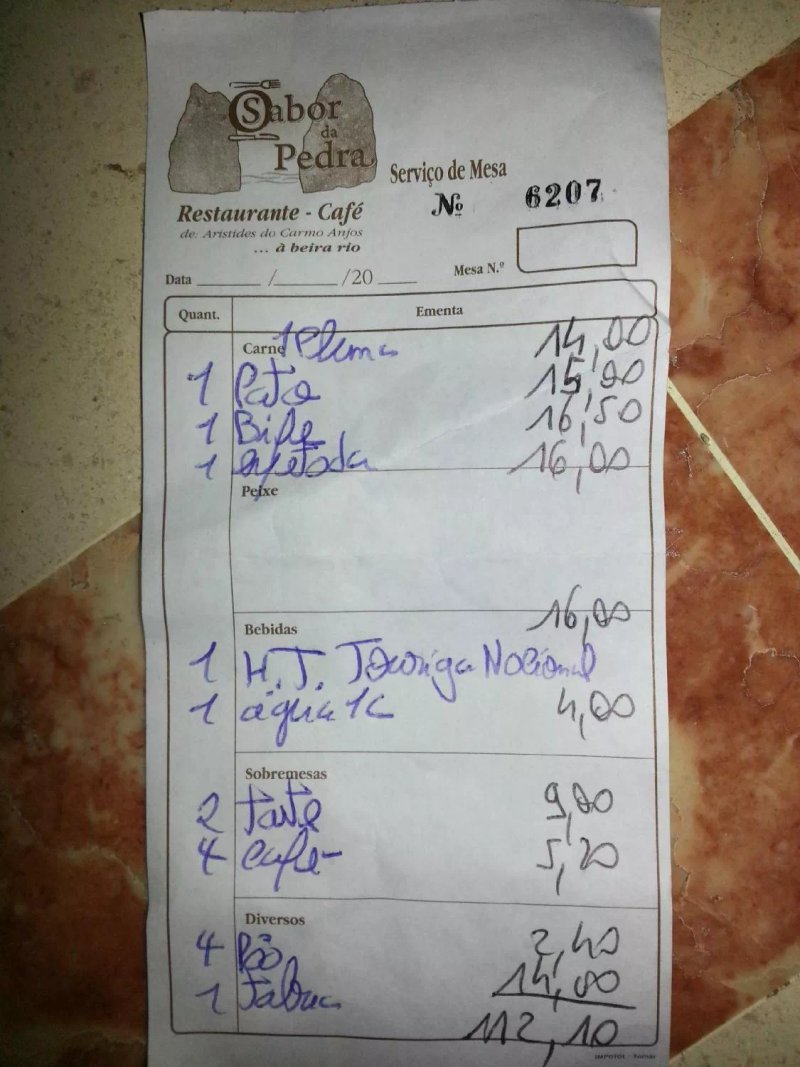 Sabor
da
Pedra
Serviço de Mesa
Nº 6207
Restaurante - Café
de: Aristides do Carmo Anjos
... à beira rio
Data ______ /______ /20 ____ Mesa N.º
Quant. Ementa
Carne 1 Pluma 14,00
1 Pato 15,00
1 Bife 16,50
1 espetada 16,00
Peixe
16,00
Bebidas
1 H.T. Touriga Nacional
1 água 1L 4,00
Sobremesas
2 tarte 9,00
4 café 5,20
Diversos
4 Pão 2,40
1 Tabua 14,00
112,10